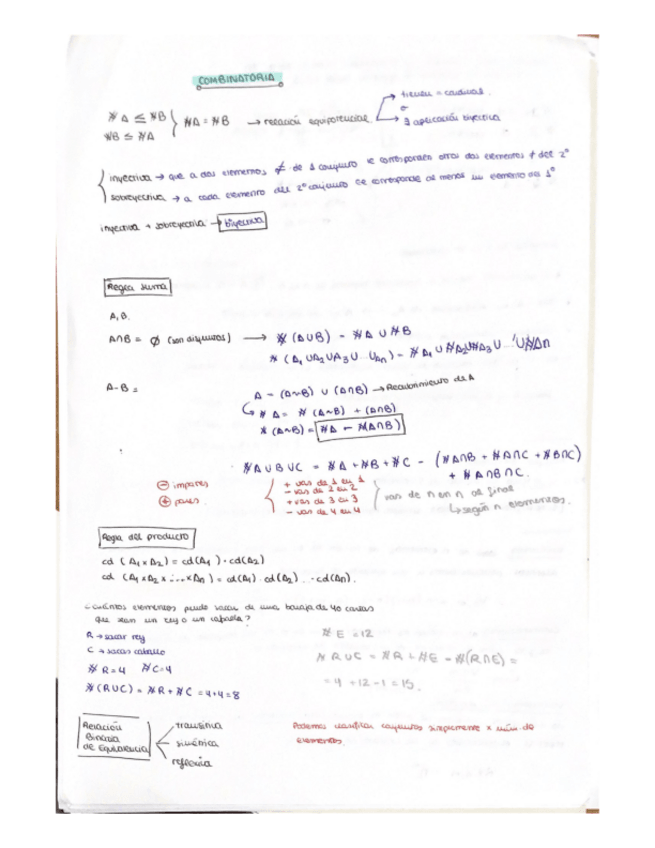 COMBINATORIA
# A ≤ # B } # A = # B → relación equipotencial → tienen = cardinal.
# B ≤ # A o
→ ∃ aplicación biyectiva
inyectiva → que a dos elementos ≠ de 1 conjunto le corresponden otros dos elementos ≠ del 2º
sobreyectiva → a cada elemento del 2º conjunto le corresponde al menos un elemento del 1º
inyectiva + sobreyectiva → biyectiva
Regla suma
A, B.
A∩B = ∅ (son disjuntos) → # (A∪B) = # A ∪ # B
# (A1 ∪ A2 ∪ A3 ∪ ... ∪An) = # A1 ∪ # A2 ∪ # A3 ∪ ... ∪ # An
A - B = A = (A∼B) ∪ (A∩B) → Recubrimiento de A
↳ # A = # (A∼B) + (A∩B)
# (A∼B) = # A - #(A∩B)
# A ∪ B ∪ C = # A + # B + # C - (# A∩B + # A∩C + # B∩C)
+ # A∩B∩C.
⊖ impares
⊕ pares
+ vas de 1 en 1
- vas de 2 en 2
+ vas de 3 en 3
- vas de 4 en 4
vas de n en n al final
↳ según n elementos.
Regla del producto
cd (A1 x A2) = cd(A1) · cd(A2)
cd (A1 x A2 x ... x An) = cd(A1) · cd(A2) ... · cd(An).
¿Cuántos elementos puedo sacar de una baraja de 40 cartas
que sean un rey o un caballo?
R → sacar rey
C → sacas caballo
# R = 4 # C = 4
# (R∪C) = # R + # C = 4+4 = 8
# E = 12
# R∪C = # R + # E - #(R∩E) =
= 4 + 12 - 1 = 15.
Relación
Binaria
de Equivalencia
transitiva
simétrica
reflexiva
Podemos clasificar conjuntos simplemente x núm. de
elementos.